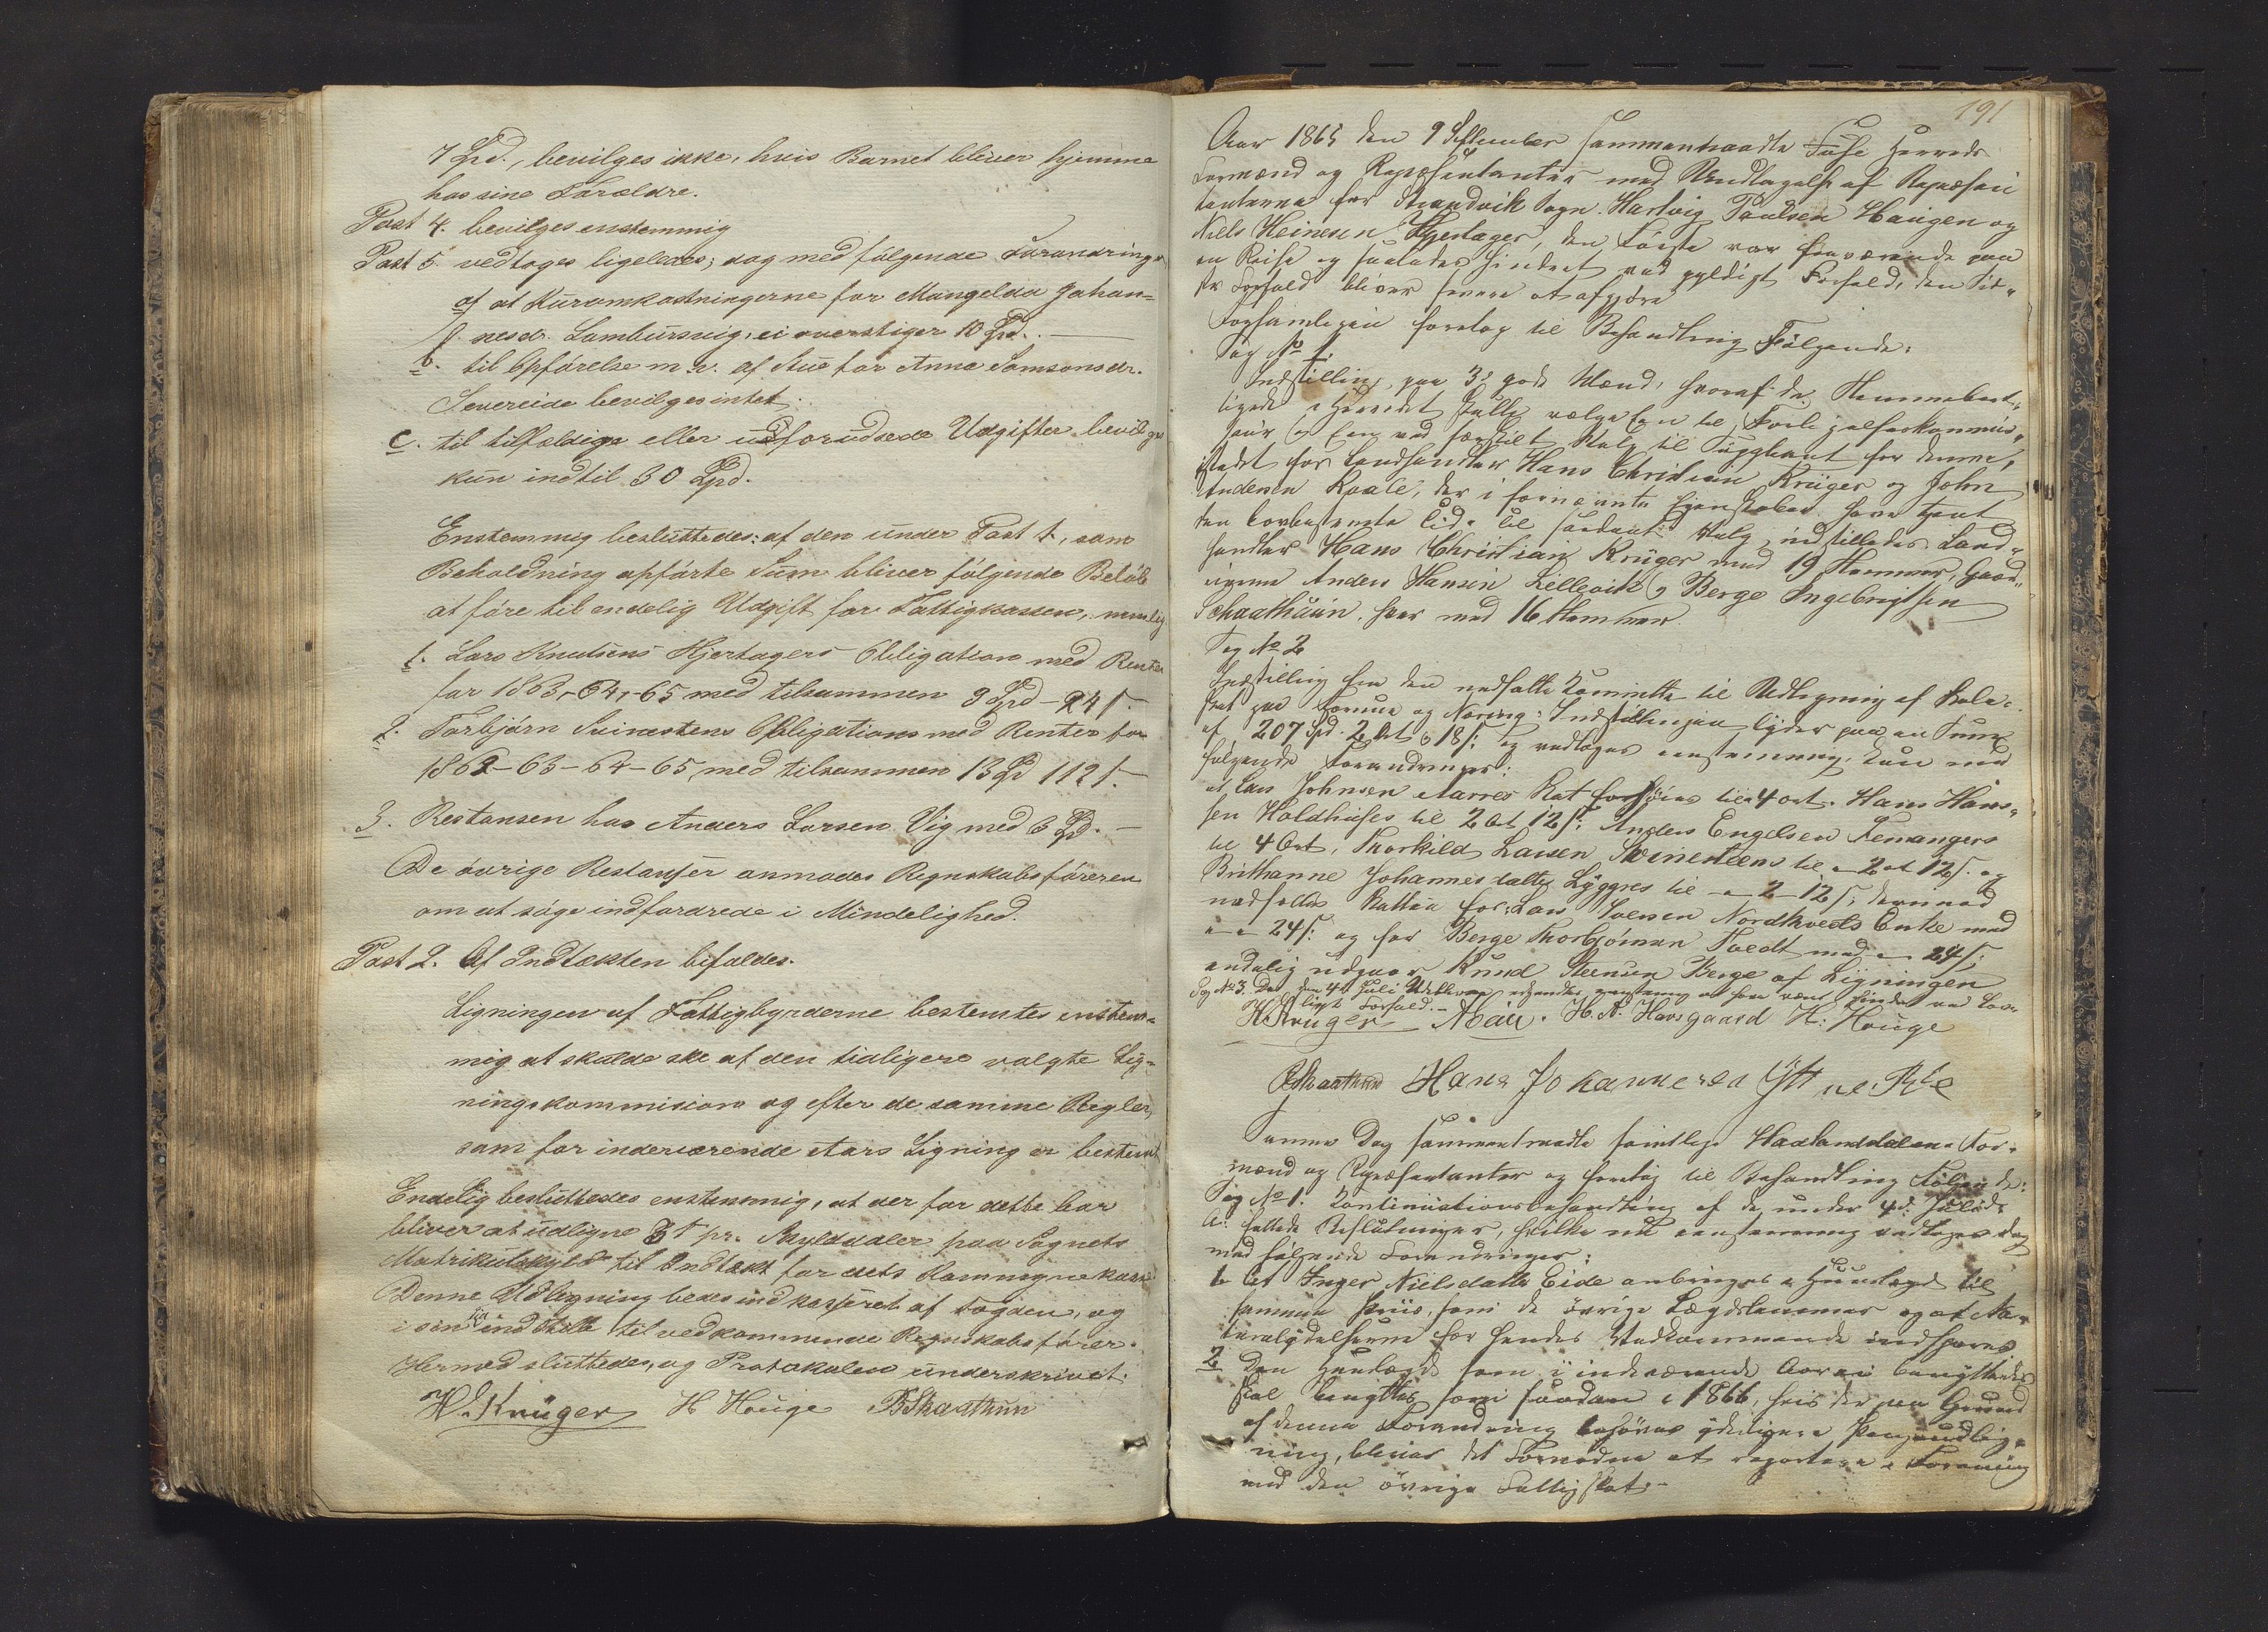 7 Spd., bevilges ikke, hvis Barnet bliver hjemme
hos sine Forældre.
Post 4. bevilges enstemmig
Post 5. vedtoges ligeledes; dog med følgende Forandringer
a) at Kuromkostningerne for Mangelda Johan=
nesdr. Lambursvig, ei overstiger 10 Spd. —
b. til Opførelse m. v. af Stue for Anna Samsonsdr.
Severeide bevilges intet.
c. til tilfældige eller uforudsede Udgifter bevilges
kun indtil 30 Spd.
Enstemmig besluttedes: af den under Post 1, som
Beholdning opførte Sum bliver følgende Beløb
at føre til endelig Udgift for Fattigkassen, nemlig
1. Lars Knutsens Hjertagers Obligation med Renter
for 1863,-64,-65 med tilsammen 9 Spd - 24 s. -
2. Torbjørn Svinestens Obligations med Renter for
1862-63-64-65, med tilsammen 13 Spd 112 s. -
3. Restansen hos Anders Larsen Vig med 6 Spd. -
De øvrige Restanser anmodes Regnskabsføreren
om at søge indfordrede i Mindelighed.
Post 2. Af Indtækten bifaldes.
Ligningen af Fattigbyrderne bestemtes enstem=
mig at skulde ske af den tidligere valgte Lig=
ningskommision og efter de samme Regler,
som for indeværende Aars Ligning er bestemt
Endelig besluttedes enstemmig, at der for dette Aar
bliver at udligne 3 s pr. Skylddaler paa Sognets
Matrikulskyld til Indtækt for dets Kommunekasse
Denne Udligning bedes indkasseret af Fogden, og
i sin Tid indstilles til vedkommende Regnskabsfører.
Hermed sluttedes, og Protokolen underskrivet.
H. Krüger H Houge BSkaathun
191
Aar 1865 den 9 September sammentraadte Fuse Herreds
Formænd og Repræsentanter med Undtagelse af Repræsen
tanterne for Strandvik Sogn Hartvig Paulsen Haugen og
Niels Heinesen Hjertager, den Første var fraværende paa
en Reise og saaledes hindret ved gyldigt Forfald, den Sid-
stes Forfald bliver senere at afgjøre
Forsamlingen foretog til Behandling Følgende:
Sag No 1.
Indstilling paa 3 gode Mænd, hvoraf de Stemmeberet-
tigede i Herredet skulle vælge Een til Forligelseskommis-
sair og Een ved særskilt Valg til Suppleant for denne,
istedet for Landhandler Hans Christian Krüger og John
Andersen Koale, der i fornævnte Egenskaber have tjent
den lovbestemte Tid. Til saadant Valg indstilledes Land-
handler Hans Christian Krüger med 19 Stemmer, Gaard-
mændene Anders Hansen Lillevik og Berge Ingebrigtsen
Schaathuun, hver med 16 Stemmer
Sag No 2
Indstilling fra den nedsatte Committe til Udligning af Skole-
skat paa Formue og Næring. Indstillingen lyder paa en Sum
af 207 Spd. 2 Ort 18 s: og vedtoges eenstemmig kun med
følgende Forandringer:
at Lars Johnsen Aarres Skat forhøies til 4 ort. Hans Hans-
sen Holdhuses til 2 Ort 12 s: Anders Engelsen Femangers
til 4 Ort, Thorkild Larsen Svinesteens til - 2 ort 12 s. og
Brithanne Johannesdatter Lyggres til - 2 - 12 s; derimod
nedsættes Skatten for: Lars Iversen Nordtveits Enke med
- - 24 s: og for Berge Thorbjörnsen Tvedt med - - 24 s;
endelig udgaar Knud Steensen Berge af Ligningen
Sag No 3. Den den 4de Juli Udeblevne erkjendtes eenstemmig at have været hindret ved Lov-
ligt Forfald. -
H. Krüger NBöe. H. A. Havsgaard H: Houge
BSkaathun Hans Johannesen
Samme Dag sammentraadte samtlige Haalandsdalens For-
mænd og Repræsentanter og foretog til Behandling Følgende:
Sag No 1. Kontinuationsbehandling af de under 4de Juli d.
A. fattede Beslutninger, hvilke nu eenstemmig vedtoges dog
med følgende Forandringer:
1. At Inger Nielsdatter Eide anbringes i Huuslægd til
samme Priis, som de øvrige Lægdslemmer og at Na-
turalydelserne for hendes Vedkommende indspares
2 Den Huuslægd som i indeværende Aar ei benyttedes
skal benyttes som saadan i 1866, hvis der paa Grund
af denne Forandring behøves yderligere Pengeudlig-
ning, bliver det Fornødne at repartere i Forening
med den øvrige Fattigskat. -